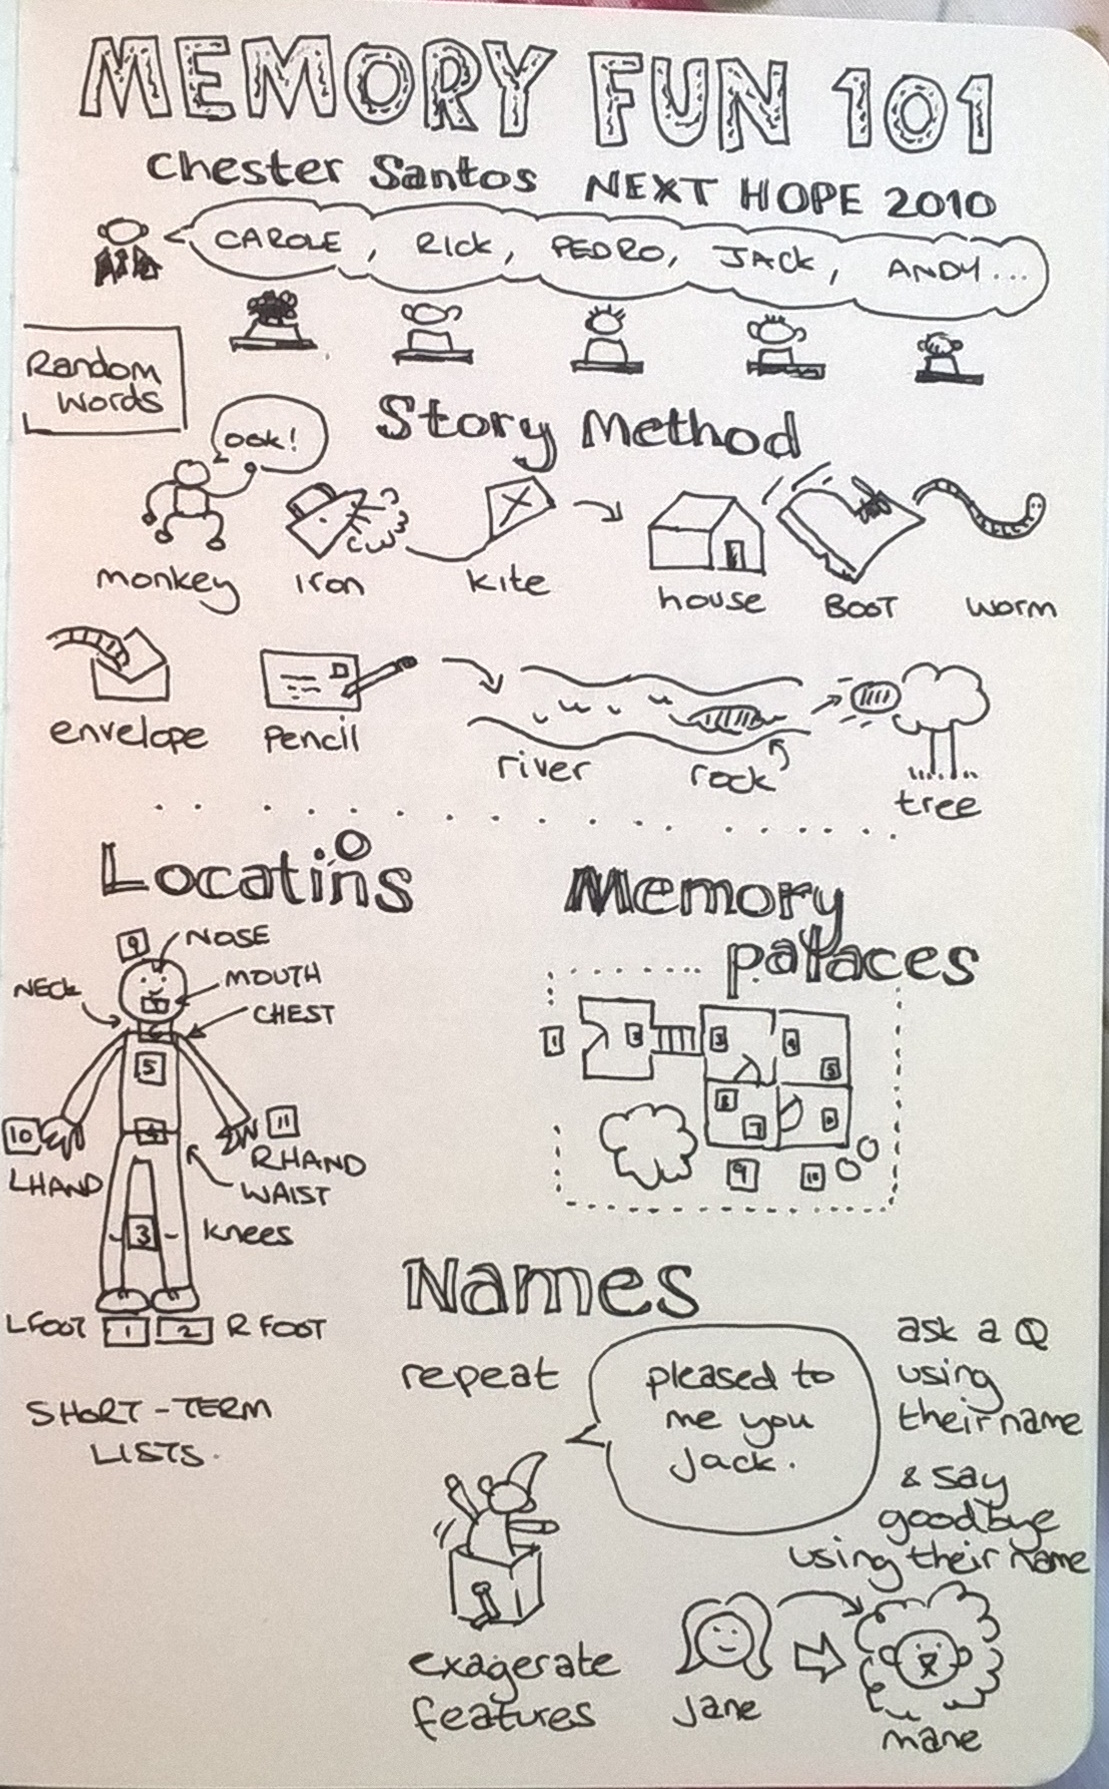 MEMORY FUN 101
Chester Santos NEXT HOPE 2010
CAROLE, RICK, PEDRO, JACK, ANDY...
Random
words
Story Method
ook!
monkey iron kite house BOOT worm
envelope pencil river rock tree
Locatins
o
9 NOSE
MOUTH
NECK
CHEST
7
6
5
10
11
4
L HAND
R HAND
WAIST
3 knees
L FOOT 1 2 R FOOT
SHORT-TERM
LISTS.
Memory
palaces
1 2 3 4
5
8 7 6
9 10
Names
repeat
pleased to
me you
Jack.
ask a Q
using
their name
& say
goodbye
using their name
exagerate
features
Jane
mane